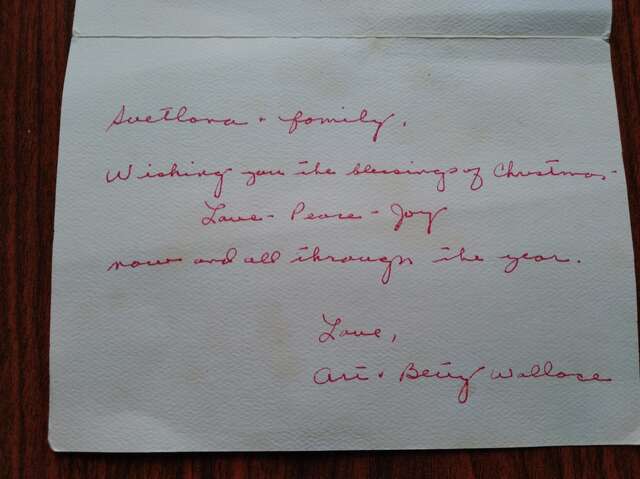 Svetlana + family,
Wishing you the blessings of Christmas -
Love - Peace - Joy
now and all through the year.
Love,
Art + Betty Wallace